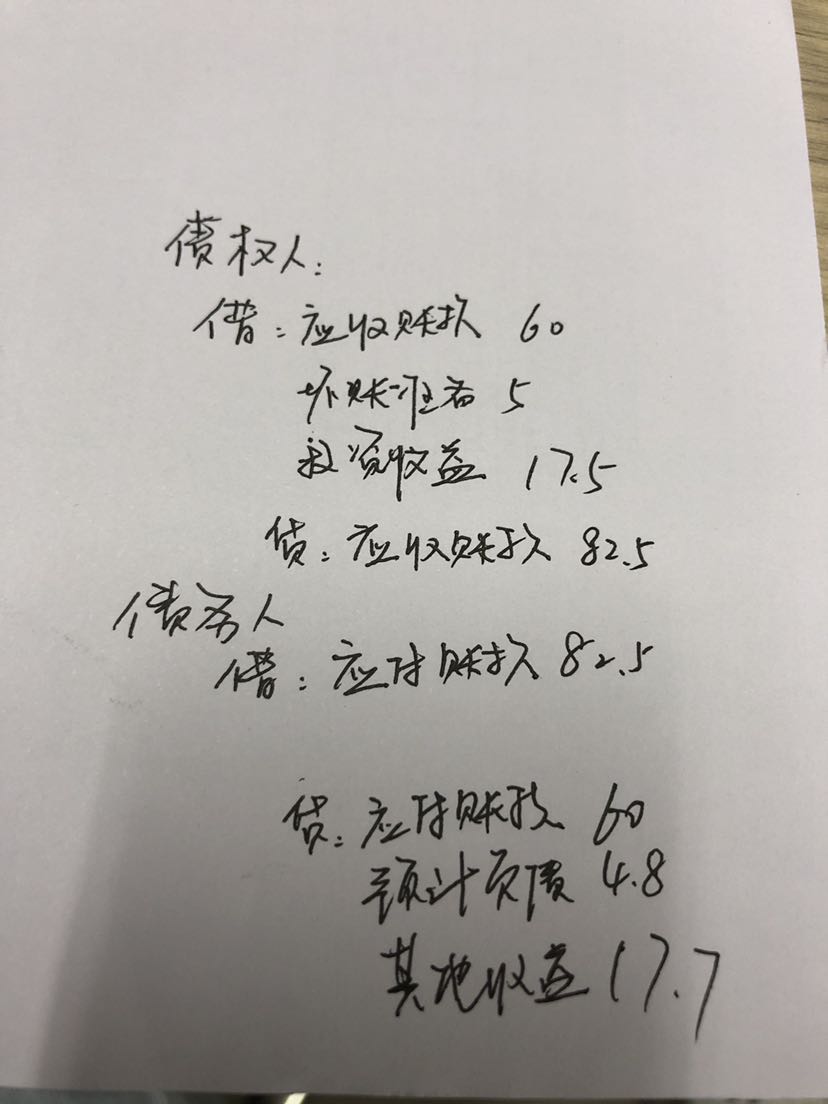 债权人:
借:应收账款 60
坏账准备 5
投资收益 17.5
贷:应收账款 82.5
债务人
借:应付账款 82.5
贷:应付账款 60
预计负债 4.8
其他收益 17.7